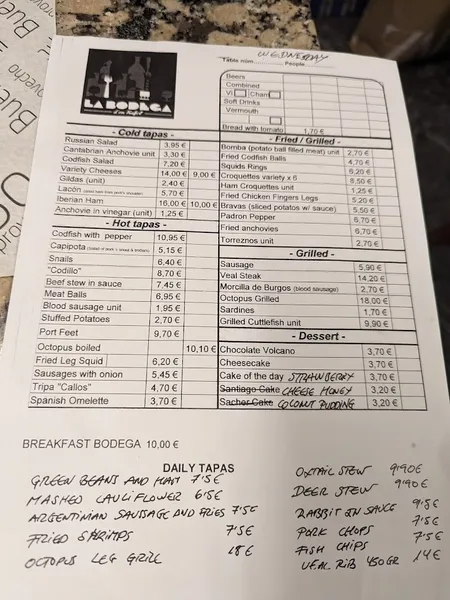 WEDNESDAY
Table num. People
LA BODEGA
Beers
Combined
Vi Cham
Soft Drinks
Vermouth
Bread with tomato 1,70 €
- Cold tapas -
Russian Salad 3,95 €
Cantabrian Anchovie unit 3,30 €
Codfish Salad 7,20 €
Variety Cheeses 14,00 € 9,00 €
Gildas (unit) 2,40 €
Lacón 5,70 €
Iberian Ham 16,00 € 10,00 €
Anchovie in vinegar (unit) 1,25 €
- Hot tapas -
Codfish with pepper 10,95 €
Capipota 5,15 €
Snails 6,40 €
"Codillo" 8,70 €
Beef stew in sauce 7,45 €
Meat Balls 6,95 €
Blood sausage unit 1,95 €
Stuffed Potatoes 2,70 €
Port Feet 9,70 €
Octopus boiled 10,10 €
Fried Leg Squid 6,20 €
Sausages with onion 5,45 €
Tripa "Callos" 4,70 €
Spanish Omelette 3,70 €
- Fried / Grilled -
Bomba (potato ball filled meat) unit 2,70 €
Fried Codfish Balls 4,70 €
Squids Rings 6,20 €
Croquettes variety x 6 6,50 €
Ham Croquettes unit 1,25 €
Fried Chicken Fingers Legs 5,20 €
Bravas (sliced potatoes w/ sauce) 5,50 €
Padron Pepper 6,70 €
Fried anchovies 6,70 €
Torreznos unit 2,70 €
- Grilled -
Sausage 5,90 €
Veal Steak 14,20 €
Morcilla de Burgos (blood sausage) 2,70 €
Octopus Grilled 18,00 €
Sardines 1,70 €
Grilled Cuttlefish unit 9,90 €
- Dessert -
Chocolate Volcano 3,70 €
Cheesecake 3,70 €
Cake of the day STRAWBERRY 3,70 €
Santiago Cake CHEESE HONEY 3,20 €
Sacher Cake COCONUT PUDDING 3,20 €
BREAKFAST BODEGA 10,00 €
DAILY TAPAS
GREEN BEANS AND HAM 7'5€
MASHED CAULIFLOWER 6'5€
ARGENTINIAN SAUSAGE AND FRIES 7'5€
FRIED SHRIMPS 7'5€
OCTOPUS LEG GRILL 18€
OXTAIL STEW 9'90€
DEER STEW 9'90€
RABBIT IN SAUCE 9'5€
PORK CHOPS 7'5€
FISH CHIPS 7'5€
VEAL RIB 450GR 14€